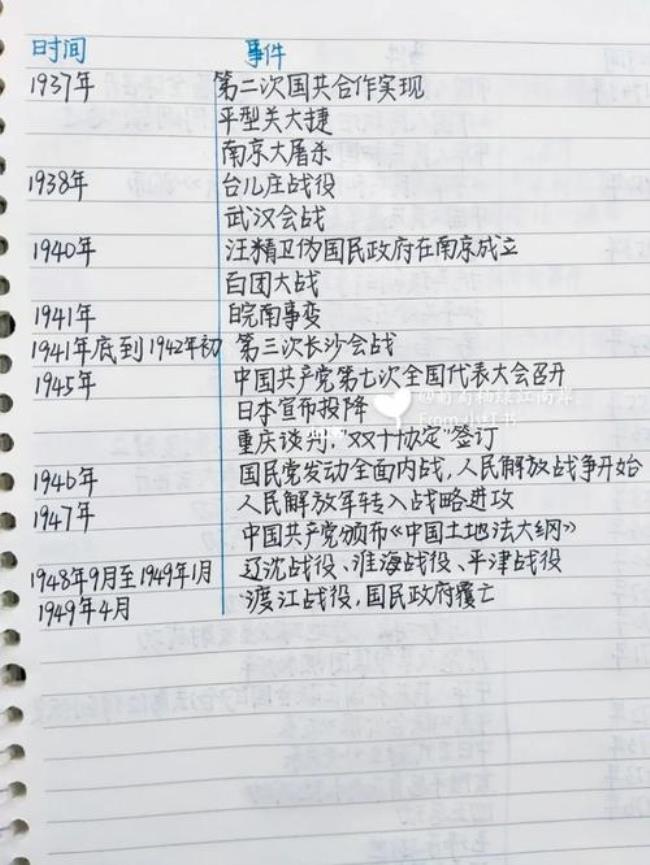 时间 事件
1937年 第二次国共合作实现
平型关大捷
南京大屠杀
1938年 台儿庄战役
武汉会战
1940年 汪精卫伪国民政府在南京成立
百团大战
1941年 皖南事变
1941年底到1942年初 第三次长沙会战
1945年 中国共产党第七次全国代表大会召开
日本宣布投降
重庆谈判,“双十协定”签订
1946年 国民党发动全面内战,人民解放战争开始
1947年 人民解放军转入战略进攻
中国共产党颁布《中国土地法大纲》
1948年9月至1949年1月 辽沈战役、淮海战役、平津战役
1949年4月 渡江战役,国民政府覆亡